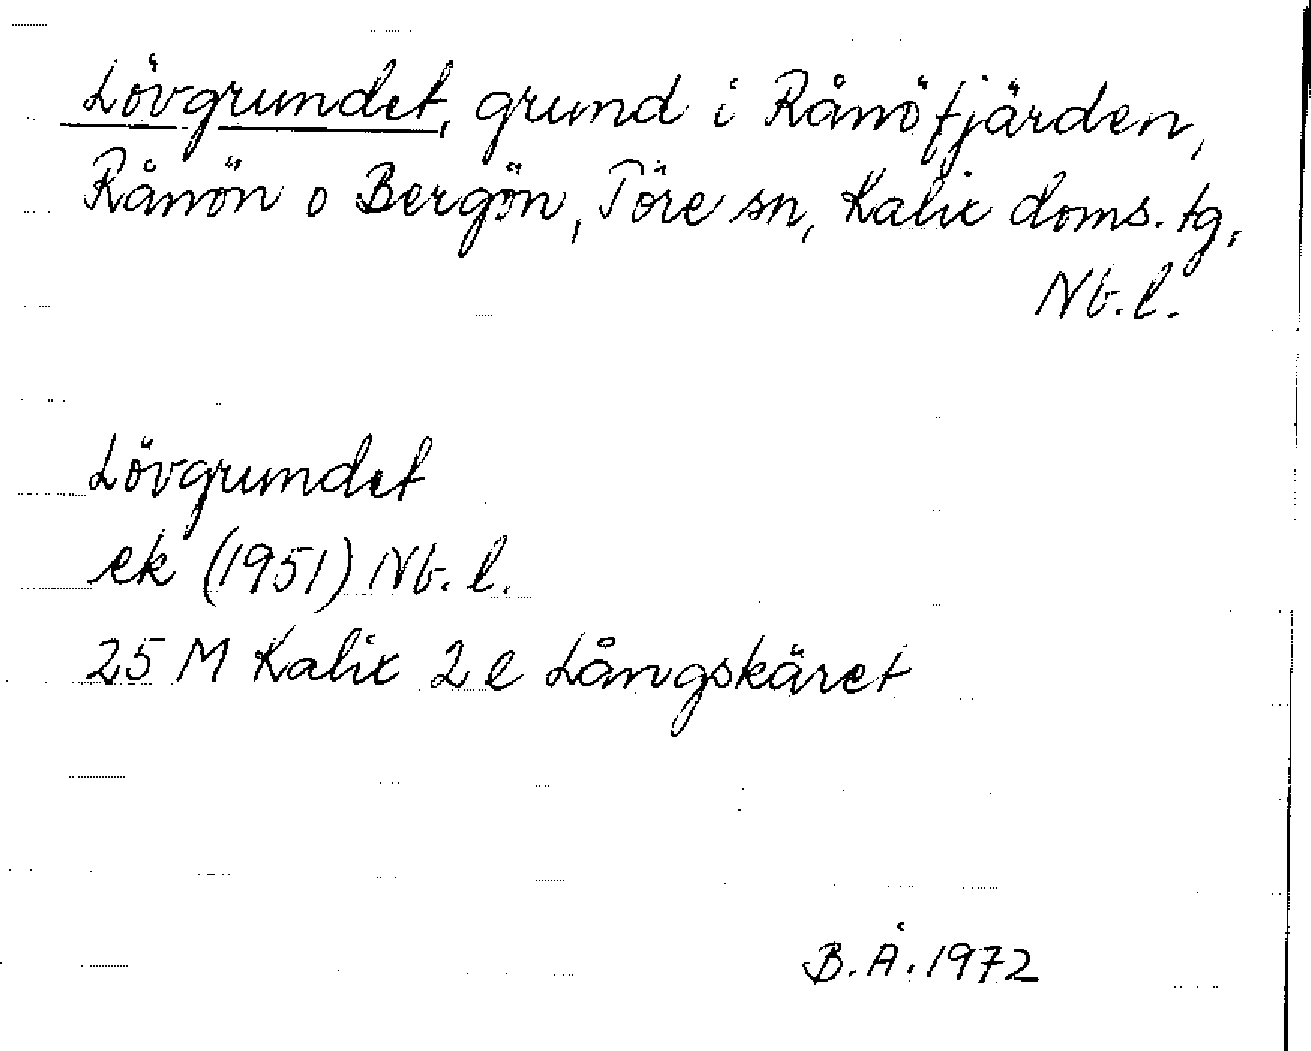 Lövgrundet, grund i Rånöfjärden,
Rånön o Bergön, Töre sn, Kalix doms. tg,
Nb. l.
Lövgrundet
ek (1951) Nb. l.
25 M Kalix 2 e Långskäret
B. Å. 1972